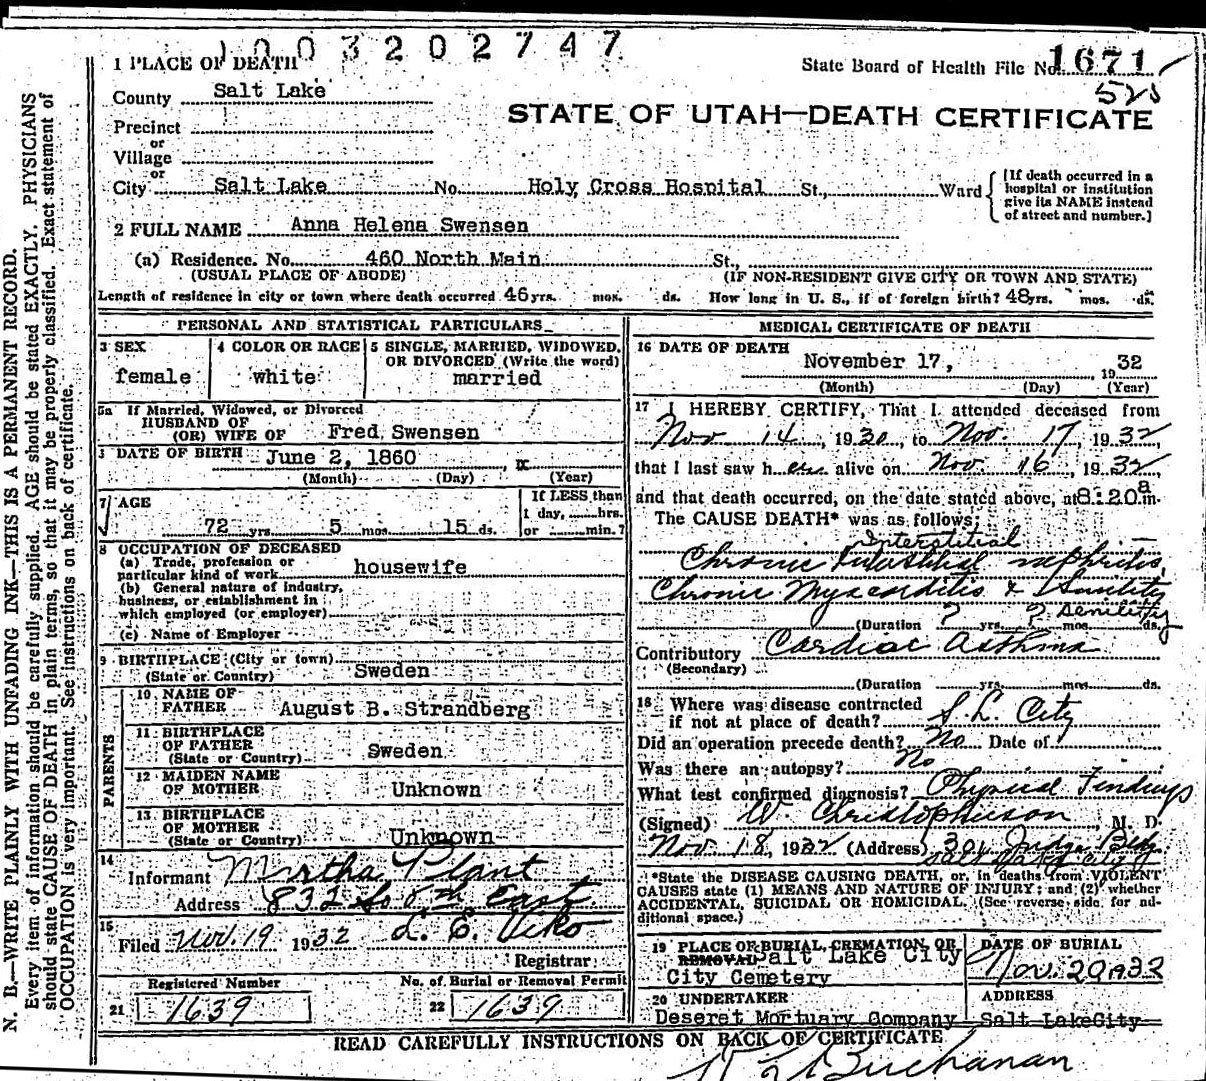 1003202747
1 PLACE OF DEATH
State Board of Health File No. 1671
County Salt Lake
STATE OF UTAH—DEATH CERTIFICATE
Precinct
or
Village
or
City Salt Lake No. Holy Cross Hospital St., Ward
[If death occurred in a
hospital or institution
give its NAME instead
of street and number.]
2 FULL NAME Anna Helena Swensen
(a) Residence. No. 460 North Main St.,
(USUAL PLACE OF ABODE) (IF NON-RESIDENT GIVE CITY OR TOWN AND STATE)
Length of residence in city or town where death occurred 46 yrs. mos. ds. How long in U. S., if of foreign birth? 48 yrs. mos. ds.
PERSONAL AND STATISTICAL PARTICULARS
3 SEX
female
4 COLOR OR RACE
white
5 SINGLE, MARRIED, WIDOWED,
OR DIVORCED (Write the word)
married
5a If Married, Widowed, or Divorced
HUSBAND OF
(OR) WIFE OF Fred Swensen
DATE OF BIRTH June 2, 1860
(Month) (Day) (Year)
7 AGE
72 yrs 5 mos. 15 ds.
If LESS than
1 day, hrs.
or min.?
8 OCCUPATION OF DECEASED
(a) Trade, profession or
particular kind of work housewife
(b) General nature of industry,
business, or establishment in
which employed (or employer)
(c) Name of Employer
9 BIRTHPLACE (City or town)
(State or Country) Sweden
PARENTS
10 NAME OF
FATHER August B. Strandberg
11 BIRTHPLACE
OF FATHER
(State or Country) Sweden
12 MAIDEN NAME
OF MOTHER Unknown
13 BIRTHPLACE
OF MOTHER
(State or Country) Unknown
14
Informant Mirtha Plant
Address 832 So 8th East
15
Filed Nov. 19 1932 L. E. Viko
Registrar
Registered Number
21 1639
No. of Burial or Removal Permit
22 1639
MEDICAL CERTIFICATE OF DEATH
16 DATE OF DEATH
November 17, 1932
(Month) (Day) (Year)
17 I HEREBY CERTIFY, That I attended deceased from
Nov 14, 1930, to Nov. 17, 1932,
that I last saw her alive on Nov. 16, 1932,
and that death occurred, on the date stated above, at 8:20 a m.
The CAUSE DEATH* was as follows:
Interstitial
Chronic Intestitial nephritis,
Chronic Myocarditis & Senility
(Duration ? yrs. ? mos. ds. senility
Contributory Cardiac Asthma
(Secondary)
(Duration yrs. mos. ds.
18 Where was disease contracted
if not at place of death? S. L. City
Did an operation precede death? No Date of
Was there an autopsy? No
What test confirmed diagnosis? Physical Findings
(Signed) W. Christopherson, M. D.
Nov 18, 1932 (Address) 301 Judge Bldg.
Salt Lake City
*State the DISEASE CAUSING DEATH, or, in deaths from VIOLENT
CAUSES state (1) MEANS AND NATURE OF INJURY; and (2) whether
ACCIDENTAL, SUICIDAL OR HOMICIDAL. (See reverse side for ad-
ditional space.)
19 PLACE OF BURIAL, CREMATION, OR
REMOVAL Salt Lake City
City Cemetery
DATE OF BURIAL
Nov. 20 1932
20 UNDERTAKER
Deseret Mortuary Company
ADDRESS
Salt Lake City
READ CAREFULLY INSTRUCTIONS ON BACK OF CERTIFICATE
Buchanan
N. B.—WRITE PLAINLY WITH UNFADING INK—THIS IS A PERMANENT RECORD.
Every item of information should be carefully supplied. AGE should be stated EXACTLY. PHYSICIANS
should state CAUSE OF DEATH in plain terms, so that it may be properly classified. Exact statement of
OCCUPATION is very important. See instructions on back of certificate.